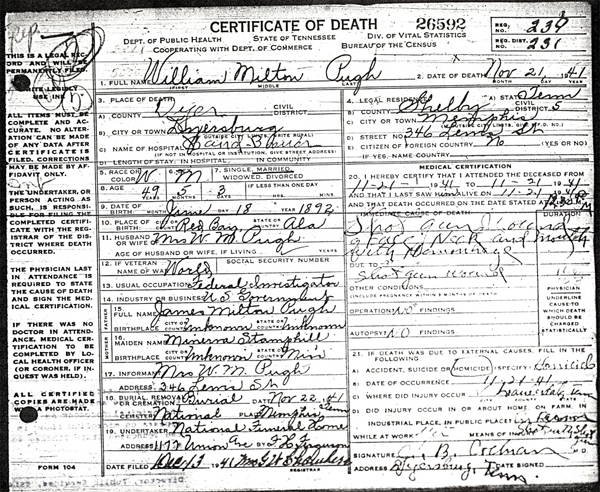 CERTIFICATE OF DEATH 26592
DEPT. OF PUBLIC HEALTH STATE OF TENNESSEE DIV. OF VITAL STATISTICS
COOPERATING WITH DEPT. OF COMMERCE BUREAU OF THE CENSUS
REG. NO. 239
REG. DIST. 231
THIS IS A LEGAL RECORD AND WILL BE PERMANENTLY FILED.
USE INK
ALL ITEMS MUST BE COMPLETE AND ACCURATE. NO ALTERATION CAN BE MADE OF ANY DATA AFTER CERTIFICATE IS FILED. CORRECTIONS MAY BE MADE BY AFFIDAVIT ONLY.
THE UNDERTAKER, OR PERSON ACTING AS SUCH, IS RESPONSIBLE FOR FILING THE COMPLETED CERTIFICATE WITH THE REGISTRAR OF THE DISTRICT WHERE DEATH OCCURRED.
THE PHYSICIAN LAST IN ATTENDANCE IS REQUIRED TO STATE THE CAUSE OF DEATH AND SIGN THE MEDICAL CERTIFICATION.
IF THERE WAS NO DOCTOR IN ATTENDANCE, MEDICAL CERTIFICATION TO BE COMPLETED BY LOCAL HEALTH OFFICER (OR CORONER, IF INQUEST WAS HELD).
ALL CERTIFIED COPIES ARE MADE WITH A PHOTOSTAT.
FORM 104
1. FULL NAME William Milton Pugh
FIRST MIDDLE LAST
2. DATE OF DEATH Nov 21 41
MONTH DAY YEAR
3. PLACE OF DEATH
A) COUNTY Dyer CIVIL DISTRICT
B) CITY OR TOWN Dyersburg
C) NAME OF HOSPITAL Baird-Brewer
LENGTH OF STAY: IN HOSPITAL IN COMMUNITY
4. LEGAL RESIDENCE A) STATE Tenn
B) COUNTY Shelby CIVIL DISTRICT 5
C) CITY OR TOWN Memphis
D) STREET NO. 346
E) CITIZEN OF FOREIGN COUNTRY No
IF YES, NAME COUNTRY
5. RACE OR COLOR W M 7. SINGLE, MARRIED, WIDOWED, DIVORCED
8. AGE 49 5 3 IF LESS THAN ONE DAY HRS. MIN.
9. DATE OF BIRTH June 18 1892
10. PLACE OF BIRTH Red Bay Ala
11. HUSBAND OR WIFE OF Mrs W. M. Pugh
AGE OF HUSBAND OR WIFE, IF LIVING YEARS
12. IF VETERAN NAME OF WAR World SOCIAL SECURITY NUMBER
13. USUAL OCCUPATION Federal Investigator
14. INDUSTRY OR BUSINESS U S Government
15. FULL NAME James Milton Pugh
BIRTHPLACE Unknown Unknown
16. MAIDEN NAME Minerva Stamphill
BIRTHPLACE Unknown Miss
17. INFORMANT Mrs W. M. Pugh
ADDRESS 346
18. BURIAL, REMOVAL OR CREMATION Burial DATE Nov 22 41
CEMETERY National PLACE Memphis Tenn
19. UNDERTAKER National Funeral Home
1177 Union Ave
DATE FILED Dec 13 1941
REGISTRAR
MEDICAL CERTIFICATION
20. I HEREBY CERTIFY THAT I ATTENDED THE DECEASED FROM 11-21-1941 TO 11-21-1941
AND THAT I LAST SAW HIM ALIVE ON 11-21
AND THAT DEATH OCCURRED ON THE DATE STATED AT
IMMEDIATE CAUSE OF DEATH DURATION
Shot gun wound
face, Neck and mouth
with Hemorrhage
DUE TO Shot gun wound
OTHER CONDITIONS
(INCLUDE PREGNANCY WITHIN 3 MONTHS OF DEATH)
OPERATION? NO FINDINGS
AUTOPSY? NO FINDINGS
PHYSICIAN
UNDERLINE CAUSE TO WHICH DEATH SHOULD BE CHARGED STATISTICALLY
21. IF DEATH WAS DUE TO EXTERNAL CAUSES, FILL IN THE FOLLOWING
A) ACCIDENT, SUICIDE OR HOMICIDE (SPECIFY) Homicide
B) DATE OF OCCURRENCE 11-21-41
C) WHERE DID INJURY OCCUR
D) DID INJURY OCCUR IN OR ABOUT HOME, ON FARM, IN INDUSTRIAL PLACE, IN PUBLIC PLACE?
WHILE AT WORK MEANS OF INJURY
SIGNATURE
ADDRESS Dyersburg Tenn. DATE SIGNED